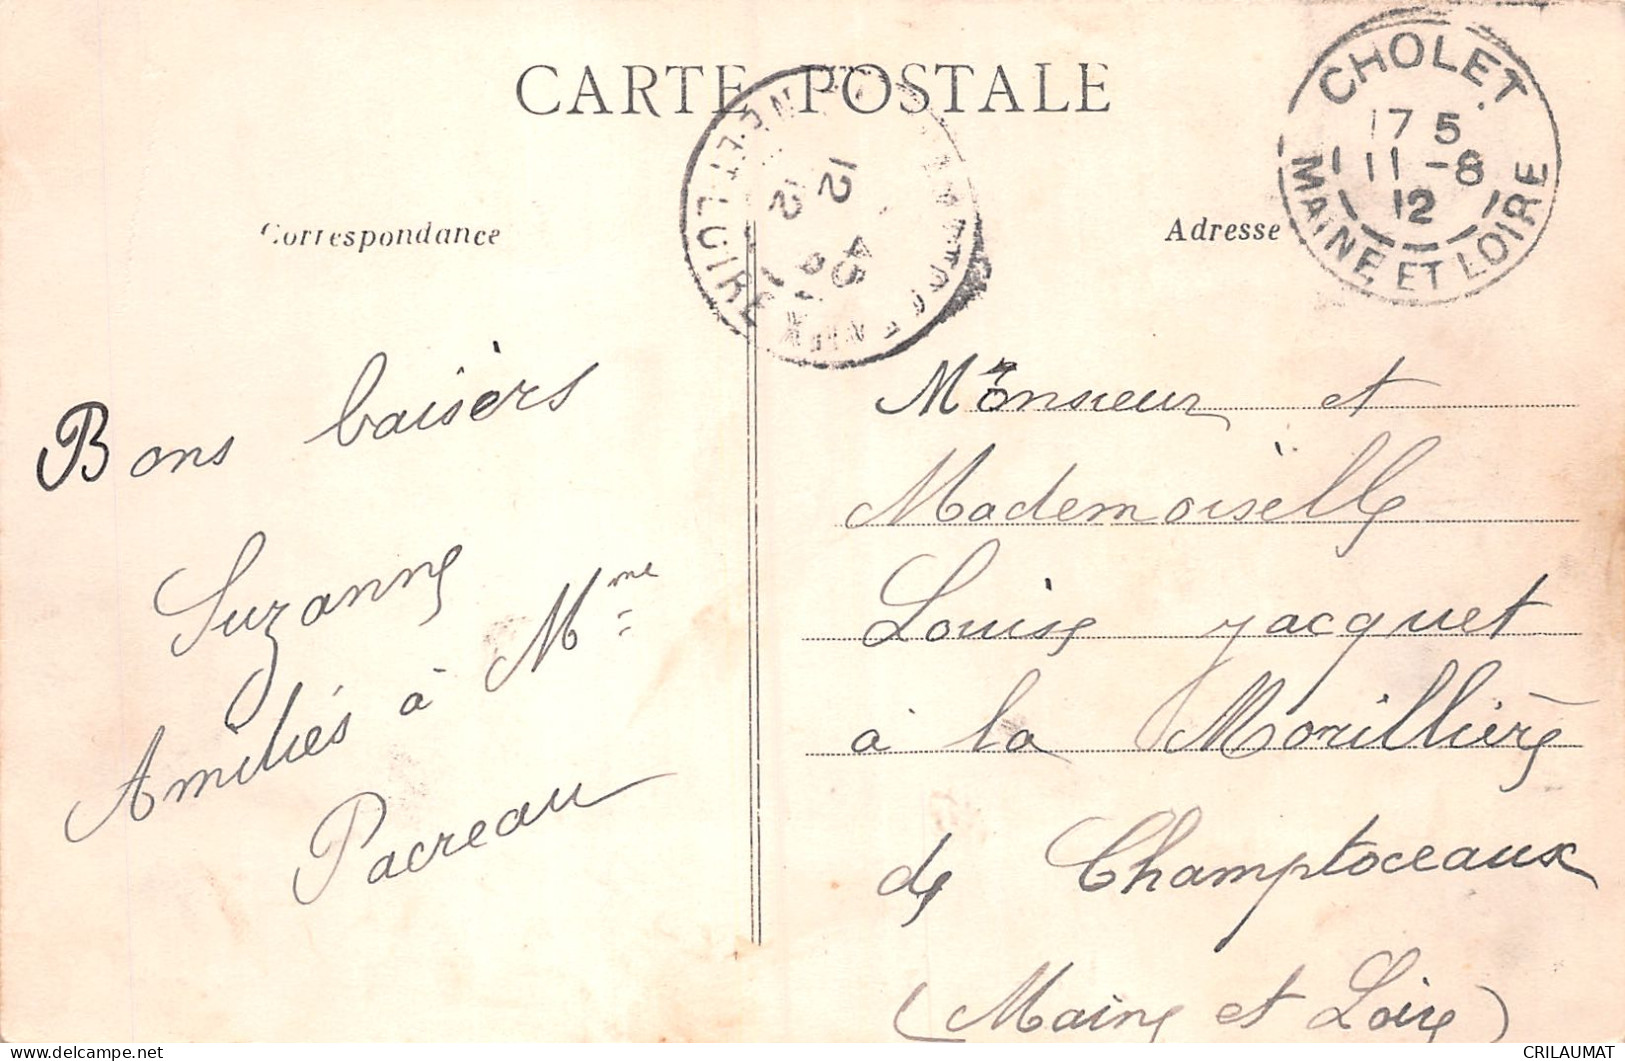 CARTE POSTALE
Correspondance
Adresse
CHOLET
17 5
11 -8
12
MAINE ET LOIRE
12
12
ET LOIRE
Bons baisers
Suzanne
Amitiés à Mme
Pacreau
Monsieur et
Mademoiselle
Louise Jacquet
à la Morillière
de Champtoceaux
(Maine et Loire)
CRILAUMAT